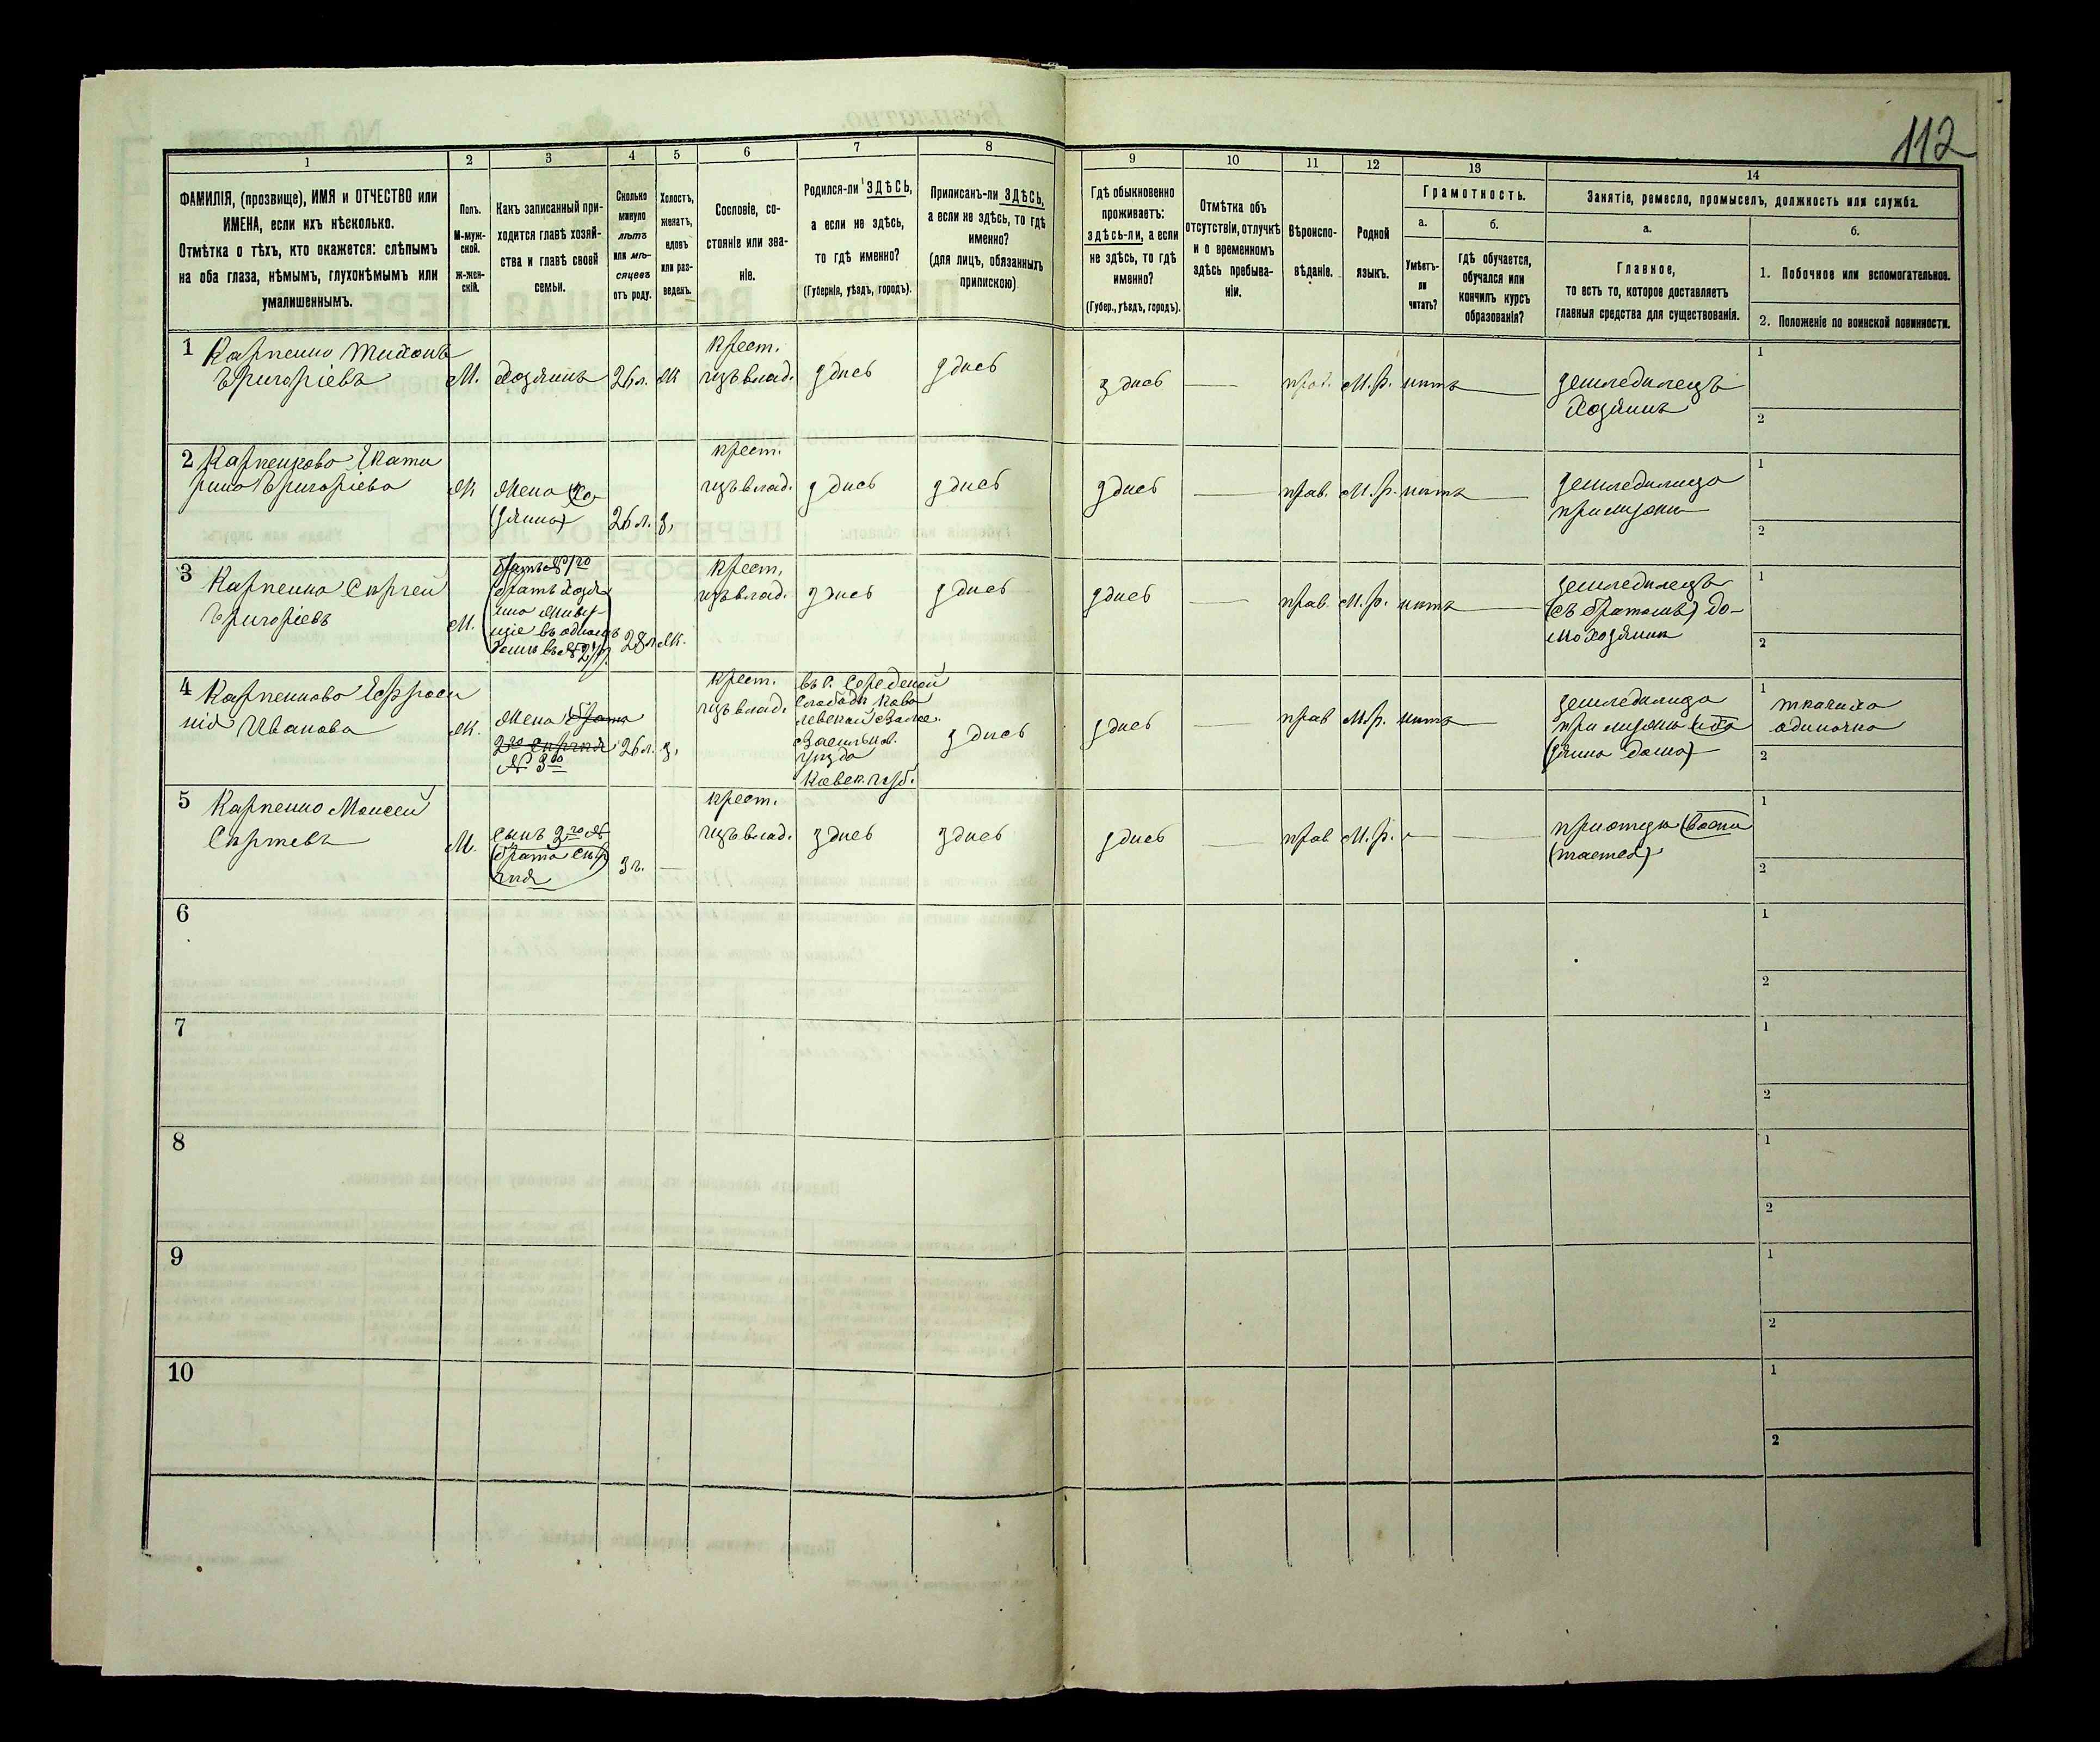 112
1
2
3
4
5
6
7
8
9
10
11
12
13
14
ФАМИЛІЯ, (прозвище), ИМЯ и ОТЧЕСТВО или
ИМЕНА, если ихъ нѣсколько.
Отмѣтка о тѣхъ, кто окажется: слѣпымъ
на оба глаза, нѣмымъ, глухонѣмымъ или
умалишеннымъ.
Полъ.
М-муж-
ской.
Ж-жен-
скій.
Какъ записанный при-
ходится главѣ хозяй-
ства и главѣ своей
семьи.
Сколько
минуло
лѣтъ
или мѣ-
сяцевъ
отъ роду.
Холостъ,
женатъ,
вдовъ
или раз-
веденъ.
Сословіе, со-
стояніе или зва-
ніе.
Родился-ли ЗДѢСЬ,
а если не здѣсь,
то гдѣ именно?
(Губернія, уѣздъ, городъ).
Приписанъ-ли ЗДѢСЬ,
а если не здѣсь, то гдѣ
именно?
(для лицъ, обязанныхъ
припискою)
Гдѣ обыкновенно
проживаетъ:
здѣсь-ли, а если
не здѣсь, то гдѣ
именно?
(Губер., уѣздъ, городъ).
Отмѣтка объ
отсутствіи, отлучкѣ
и о временномъ
здѣсь пребыва-
ніи.
Вѣроиспо-
вѣданіе.
Родной
языкъ.
Грамотность.
а.
Умѣетъ-
ли
читать?
б.
гдѣ обучается,
обучался или
кончилъ курсъ
образованія?
Занятіе, ремесло, промыселъ, должность или служба.
а.
Главное,
то есть то, которое доставляетъ
главныя средства для существованія.
б.
1. Побочное или вспомогательное.
2. Положеніе по воинской повинности.
1
Карпенко Тихонъ
Григоріевъ
М.
Хозяинъ
26 л.
Ж
крест.
изъ влад.
здѣсь
здѣсь
здѣсь
прав.
М.р.
нѣтъ
земледѣлецъ
хозяинъ
1
2
2
Карпенкова Екате
рина Григоріева
Ж
Жена (хо
зяина)
26 л.
з.
крест.
изъ влад.
здѣсь
здѣсь
здѣсь
прав.
М.р.
нѣтъ
земледѣлица
при мужѣ
1
2
3
Карпенко Сергей
Григоріевъ
М.
братъ № 1го
братъ хозя
ина
28 л.
Ж.
крест.
изъ влад.
здѣсь
здѣсь
здѣсь
прав.
М.р.
нѣтъ
земледѣлецъ
(съ братомъ) до-
мохозяинъ
1
2
4
Карпенкова Ефроси
нія Иванова
Ж.
Жена брата
2го Сергѣя
№ 3го
26 л.
з.
крест.
изъ влад.
въ с.
Слободы
уѣзда
Кіевск. губ.
здѣсь
здѣсь
прав
М.р.
нѣтъ
земледѣлица
при мужѣ
1
ткачиха
одиночка
2
5
Карпенко Моисей
Сергѣевъ
М.
сынъ 3го №
(брата Сер
гѣя)
3 г.
крест.
изъ влад.
здѣсь
здѣсь
здѣсь
прав
М.р.
при отцѣ (воспи
тается)
1
2
6
1
2
7
1
2
8
1
2
9
1
2
10
1
2